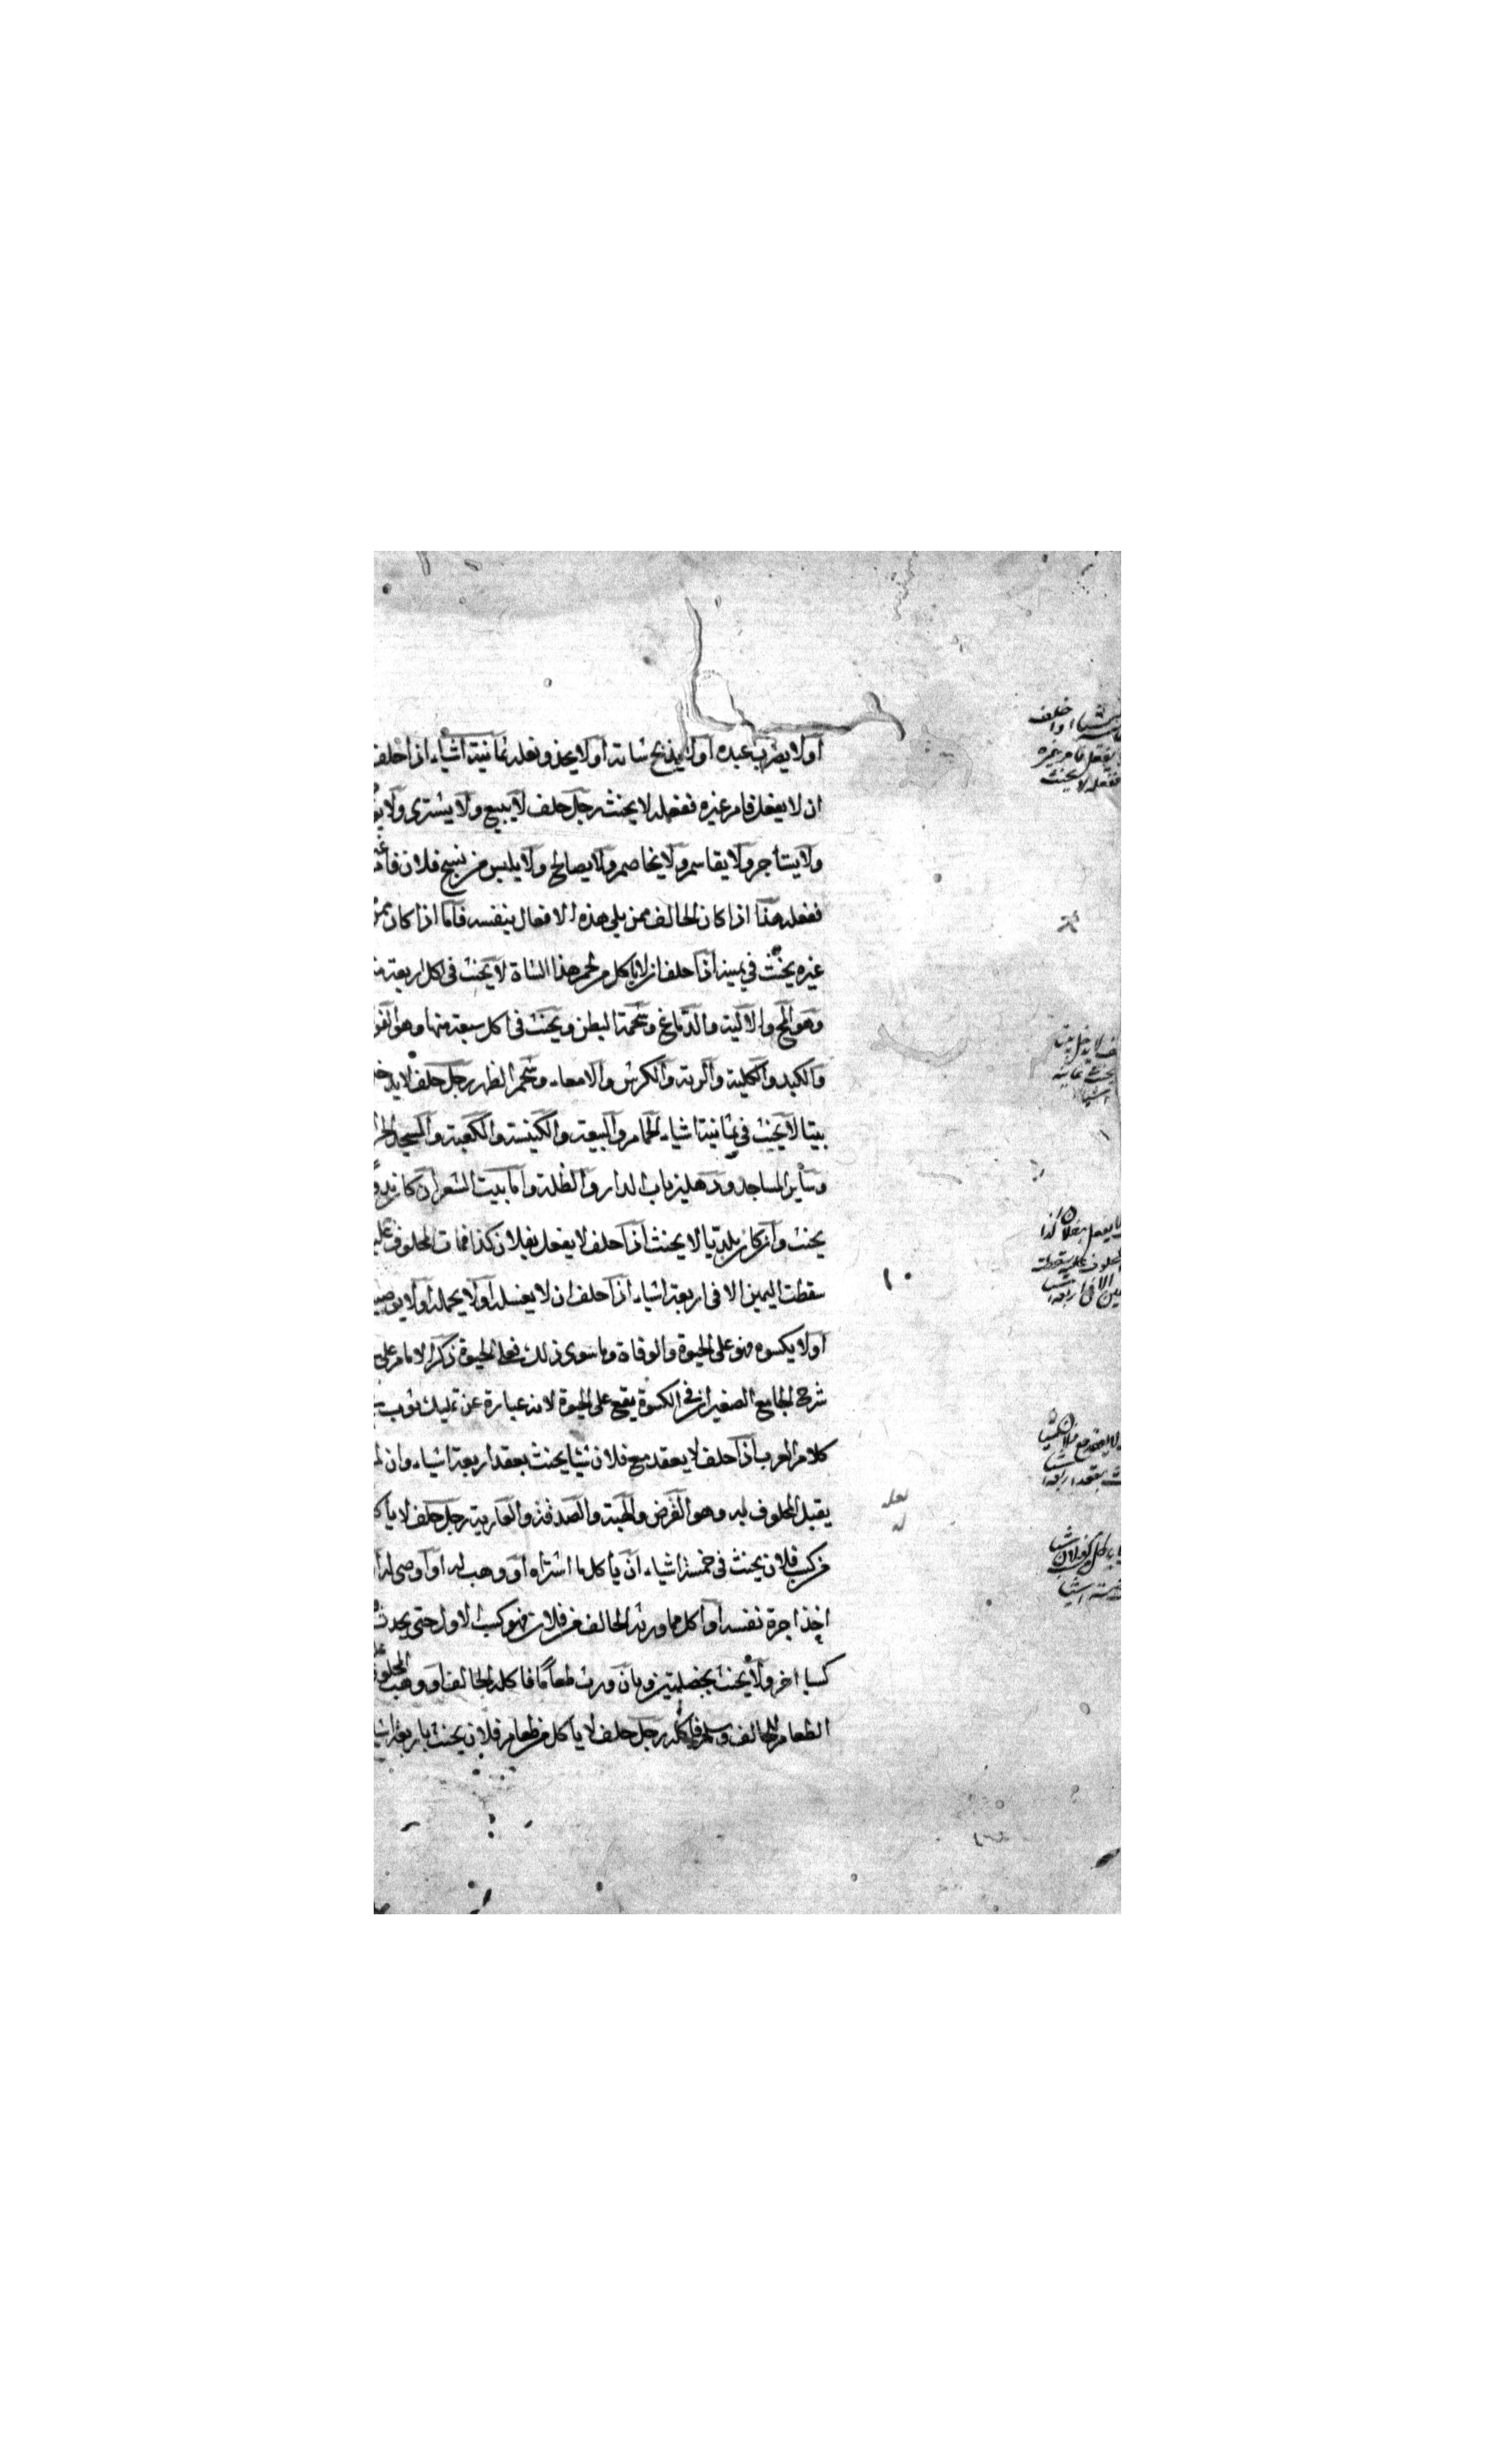 او لا يضرب عبده او لا يذبح شاته او لا يحذو نعله ثمانية اشياء اذا حلف
ان لا يفعل فامر غيره ففعله لا يحنث رجل حلف لا يبيع ولا يشترى ولا
ولا يستأجر ولا يقاسم ولا يخاصم ولا يصالح ولا يلبس من نسج فلان
ففعله هذا اذا كان الحالف ممن يلى هذه الافعال بنفسه فاما اذا كان
غيره يحنث في يمينه اذا حلف ان لا ياكل من لحم هذا الشاة لا يحنث فى اكل اربعة
وهو المخ والالية والدماغ وشحمة البطن ويحنث فى اكل سبعة منها وهو
والكبد والكلية والرية والكرش والامعاء وشحم الظهر رجل حلف لا يدخل
بيتا لا يحنث في ثمانية اشياء الحمام والبيعة والكنيسة والكعبة والمسجد
وسائر المساجد ودهليز باب الدار والظلة واما بيت الشعر ان كان
يحنث وان كان بلديا لا يحنث اذا حلف لا يفعل بفلان كذا فمات المحلوف عليه
سقطت اليمين الا فى اربعة اشياء اذا حلف ان لا يغسله او لا يحمله او لا
او لا يكسوه فهو على الحيوة والوفاة وما سوى ذلك فعلى الحيوة ذكر الامام على
شرح الجامع الصغير ان فى الكسوة يقع على الحيوة لانه عبارة عن تمليك ثوب
كلام العرب اذا حلف لا يعقد مع فلان شيئا يحنث بعقد اربعة اشياء وان
يقبل المحلوف به وهو القرض والهبة والصدقة والعارية رجل حلف لا
من كسب فلان يحنث فى خمسة اشياء ان يأكل ما اشتراه او وهب له او اوصى له
اخذ اجرة نفسه او اكل ما ورثه الحالف من فلان فهو كسب الاول حتى يحدث
كسبا اخر ولا يحنث بخصلتين وبان ورث طعاما فاكله الحالف او وهب المحلوف
الطعام للحالف وسلم فاكله رجل حلف لا ياكل من طعام فلان يحنث باربعة
يفعل فامر غيره
ففعله لا يحنث
لا يدخل بيتا
ثمانية
اشيا
يفعل بفلان كذا
المحلوف عليه سقطت
الا فى اربعة اشيا
١٠
لا يعقد مع فلان شيئا
بعقد اربعة اشيا
لعله
له
خمسة اشيا